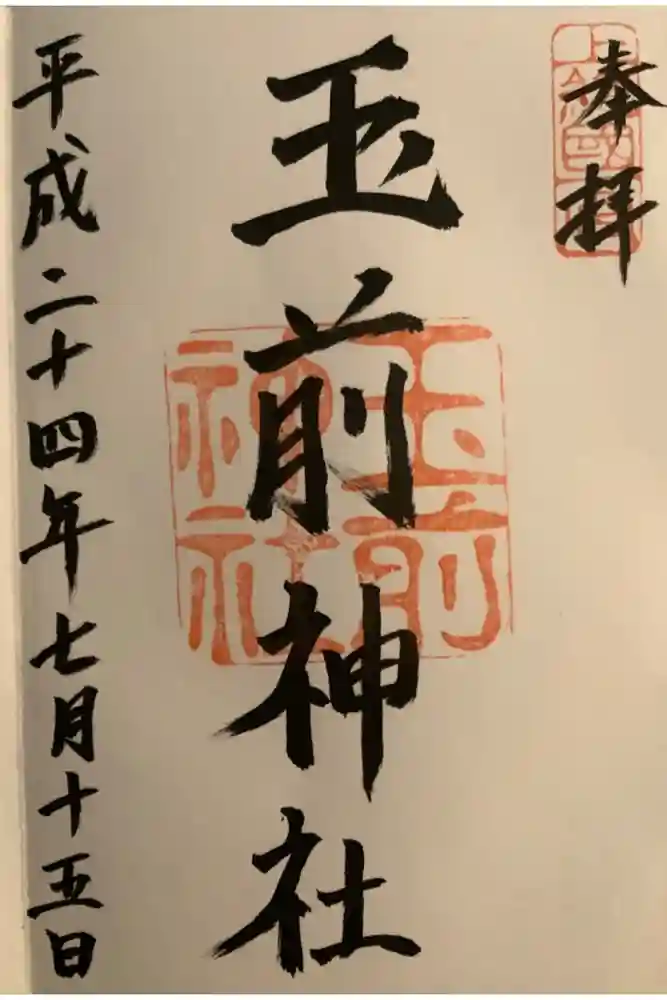 奉拝
上総国一宮
玉前神社
玉前神社
平成二十四年七月十五日